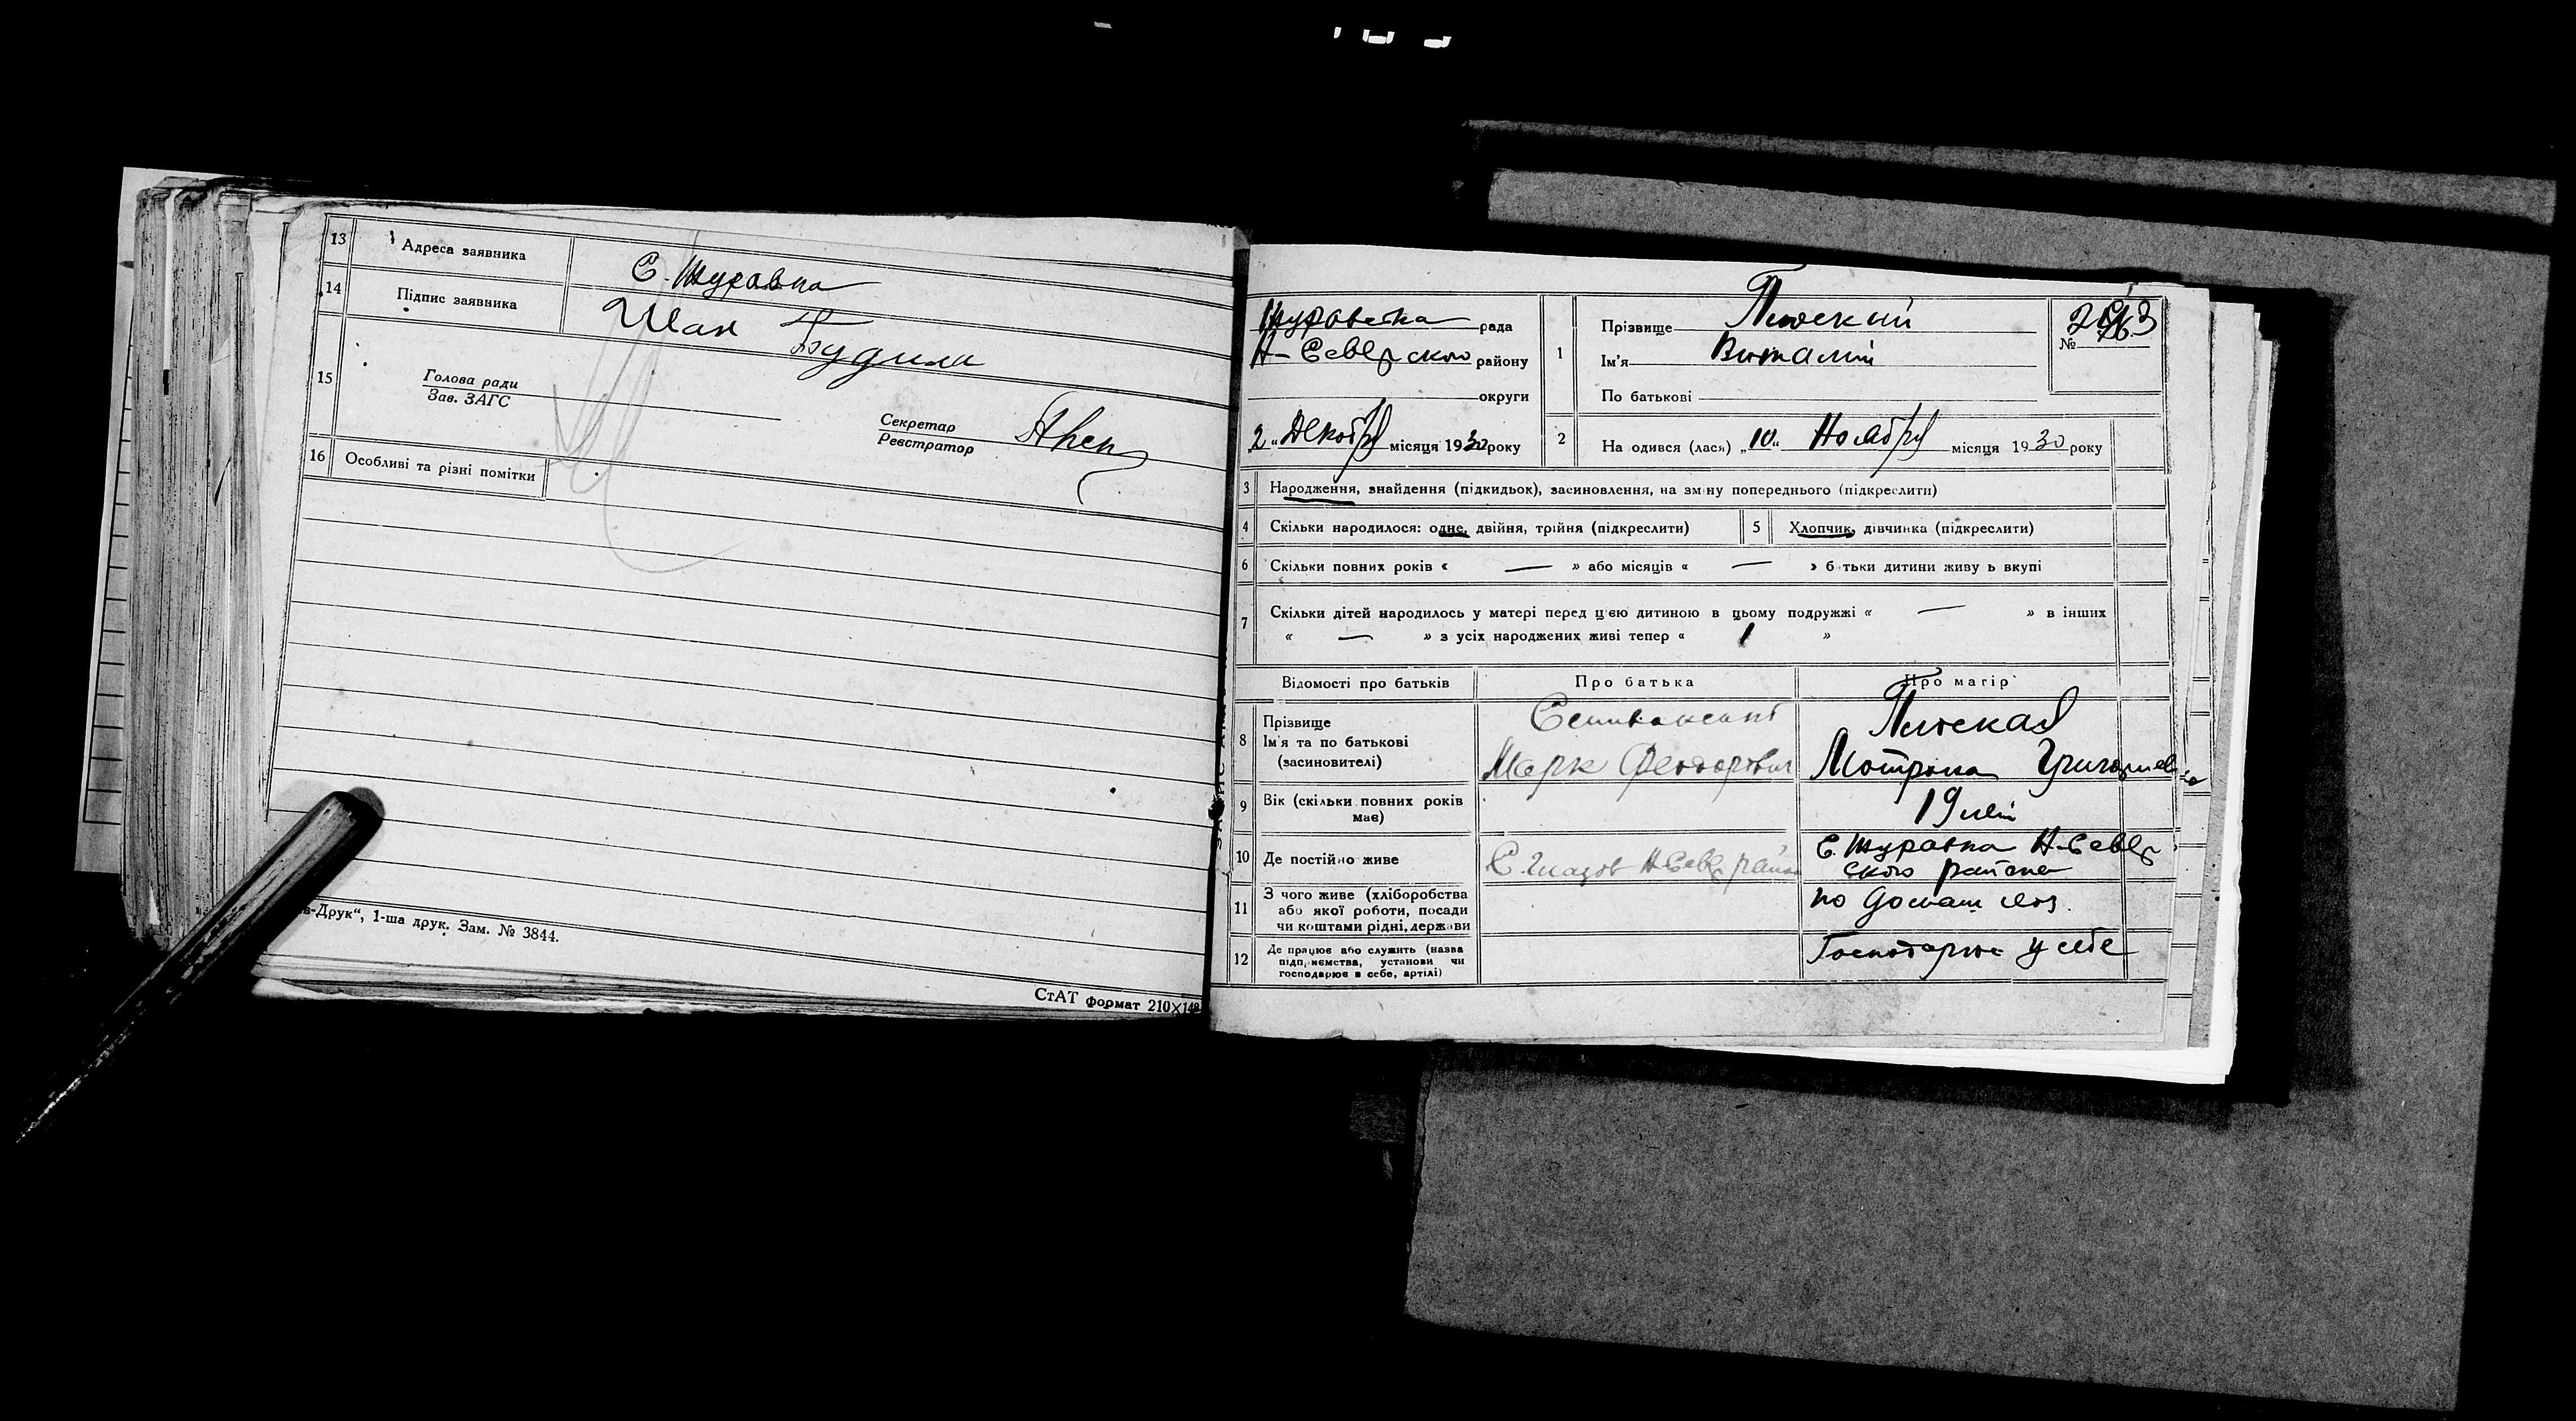 13 Адреса заявника С. Журавка
14 Підпис заявника Шан Будила
15 Голова ради
Зав. ЗАГС
Секретар
Реєстратор
16 Особливі та різні помітки
-Друк“, 1-ша друк. Зам. № 3844.
СтАТ формат 210×148
Журавска рада
Н-Северского району
округи
„2„ Декабря місяця 1930 року
1 Прізвище Плюский
Ім'я Виталий
По батькові
№
2 На одився (лася) „10„ Ноября місяця 1930 року
3 Народження, знайдення (підкидьок), засиновлення, на зміну попереднього (підкреслити)
4 Скільки народилося: одне, двійня, трійня (підкреслити)
5 Хлопчик, дівчинка (підкреслити)
6 Скільки повних років « — » або місяців « — » б тьки дитини живу ь вкупі
7 Скільки дітей народилось у матері перед цією дитиною в цьому подружжі « — » в інших
« — » з усіх народжених живі тепер « 1 »
Відомості про батьків Про батька Про матір
8 Прізвище
Ім'я та по батькові
(засиновителі)
Марк Феодорович
Плюская
Мотрона Григориевна
9 Вік (скільки повних років
має)
19 лет
10 Де постійно живе
С. Журавка Н-Север
ского района
11 З чого живе (хліборобства
або якої роботи, посади
чи коштами рідні, держави
по домаш хоз.
12 Де працює або служить (назва
підприємства, установи чи
господарює в себе, артілі)
Господарює у себе